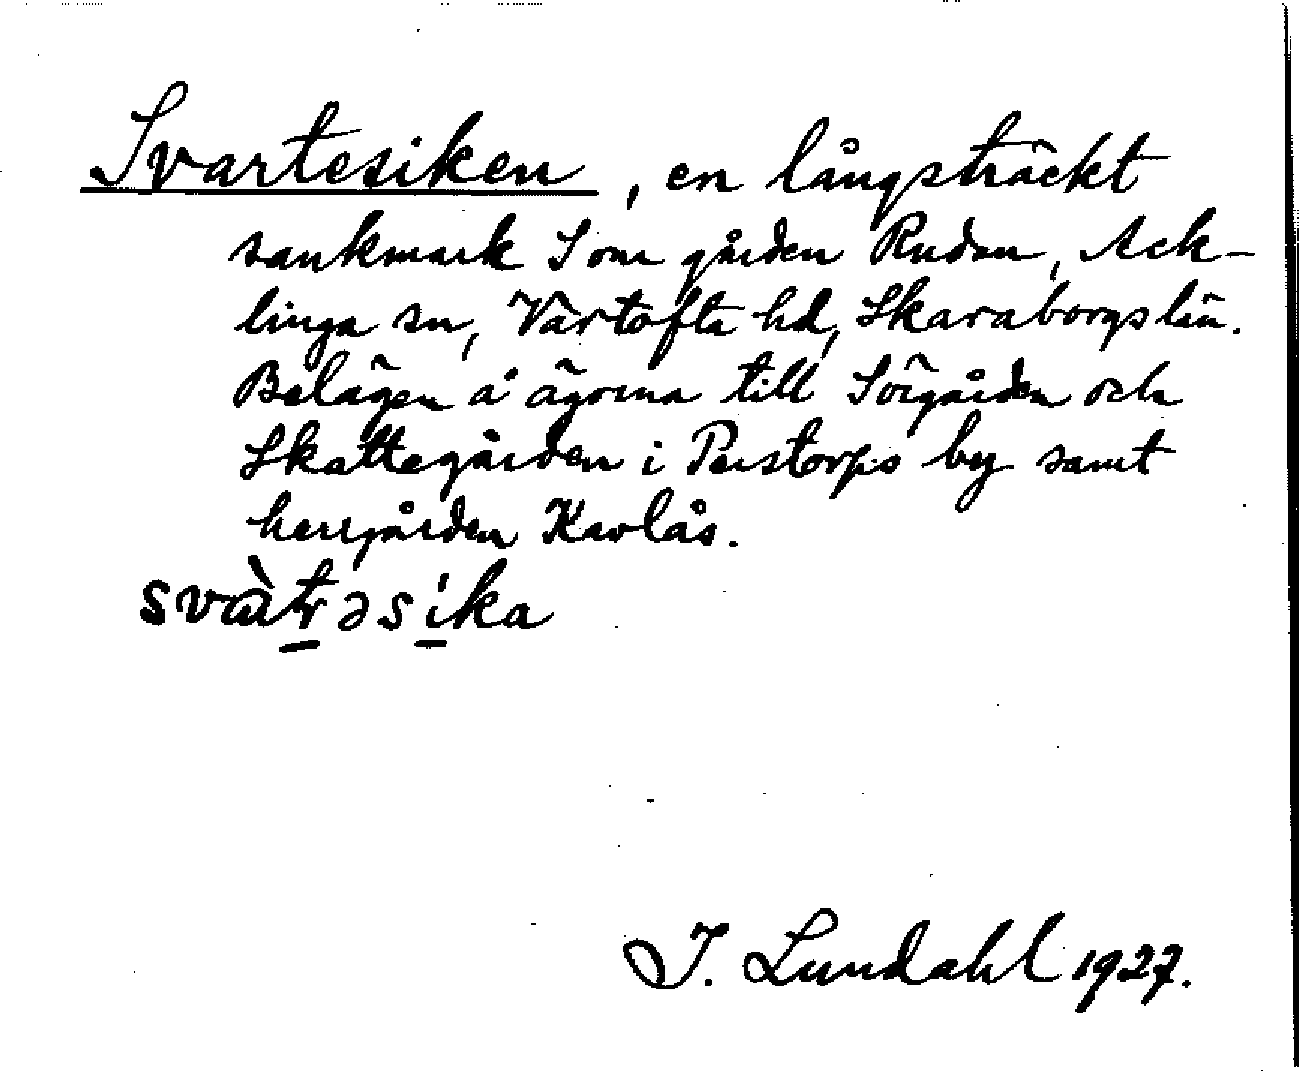 Svartesiken, en långsträckt
sankmark S om gården Rudan, Ack-
linga sn, Vartofta hd, Skaraborgs län.
Belägen å ägorna till Sörgården och
Skattegården i Perstorps by samt
herrgården Kavlås.
svàtrəsíka
J. Lundahl 1927.